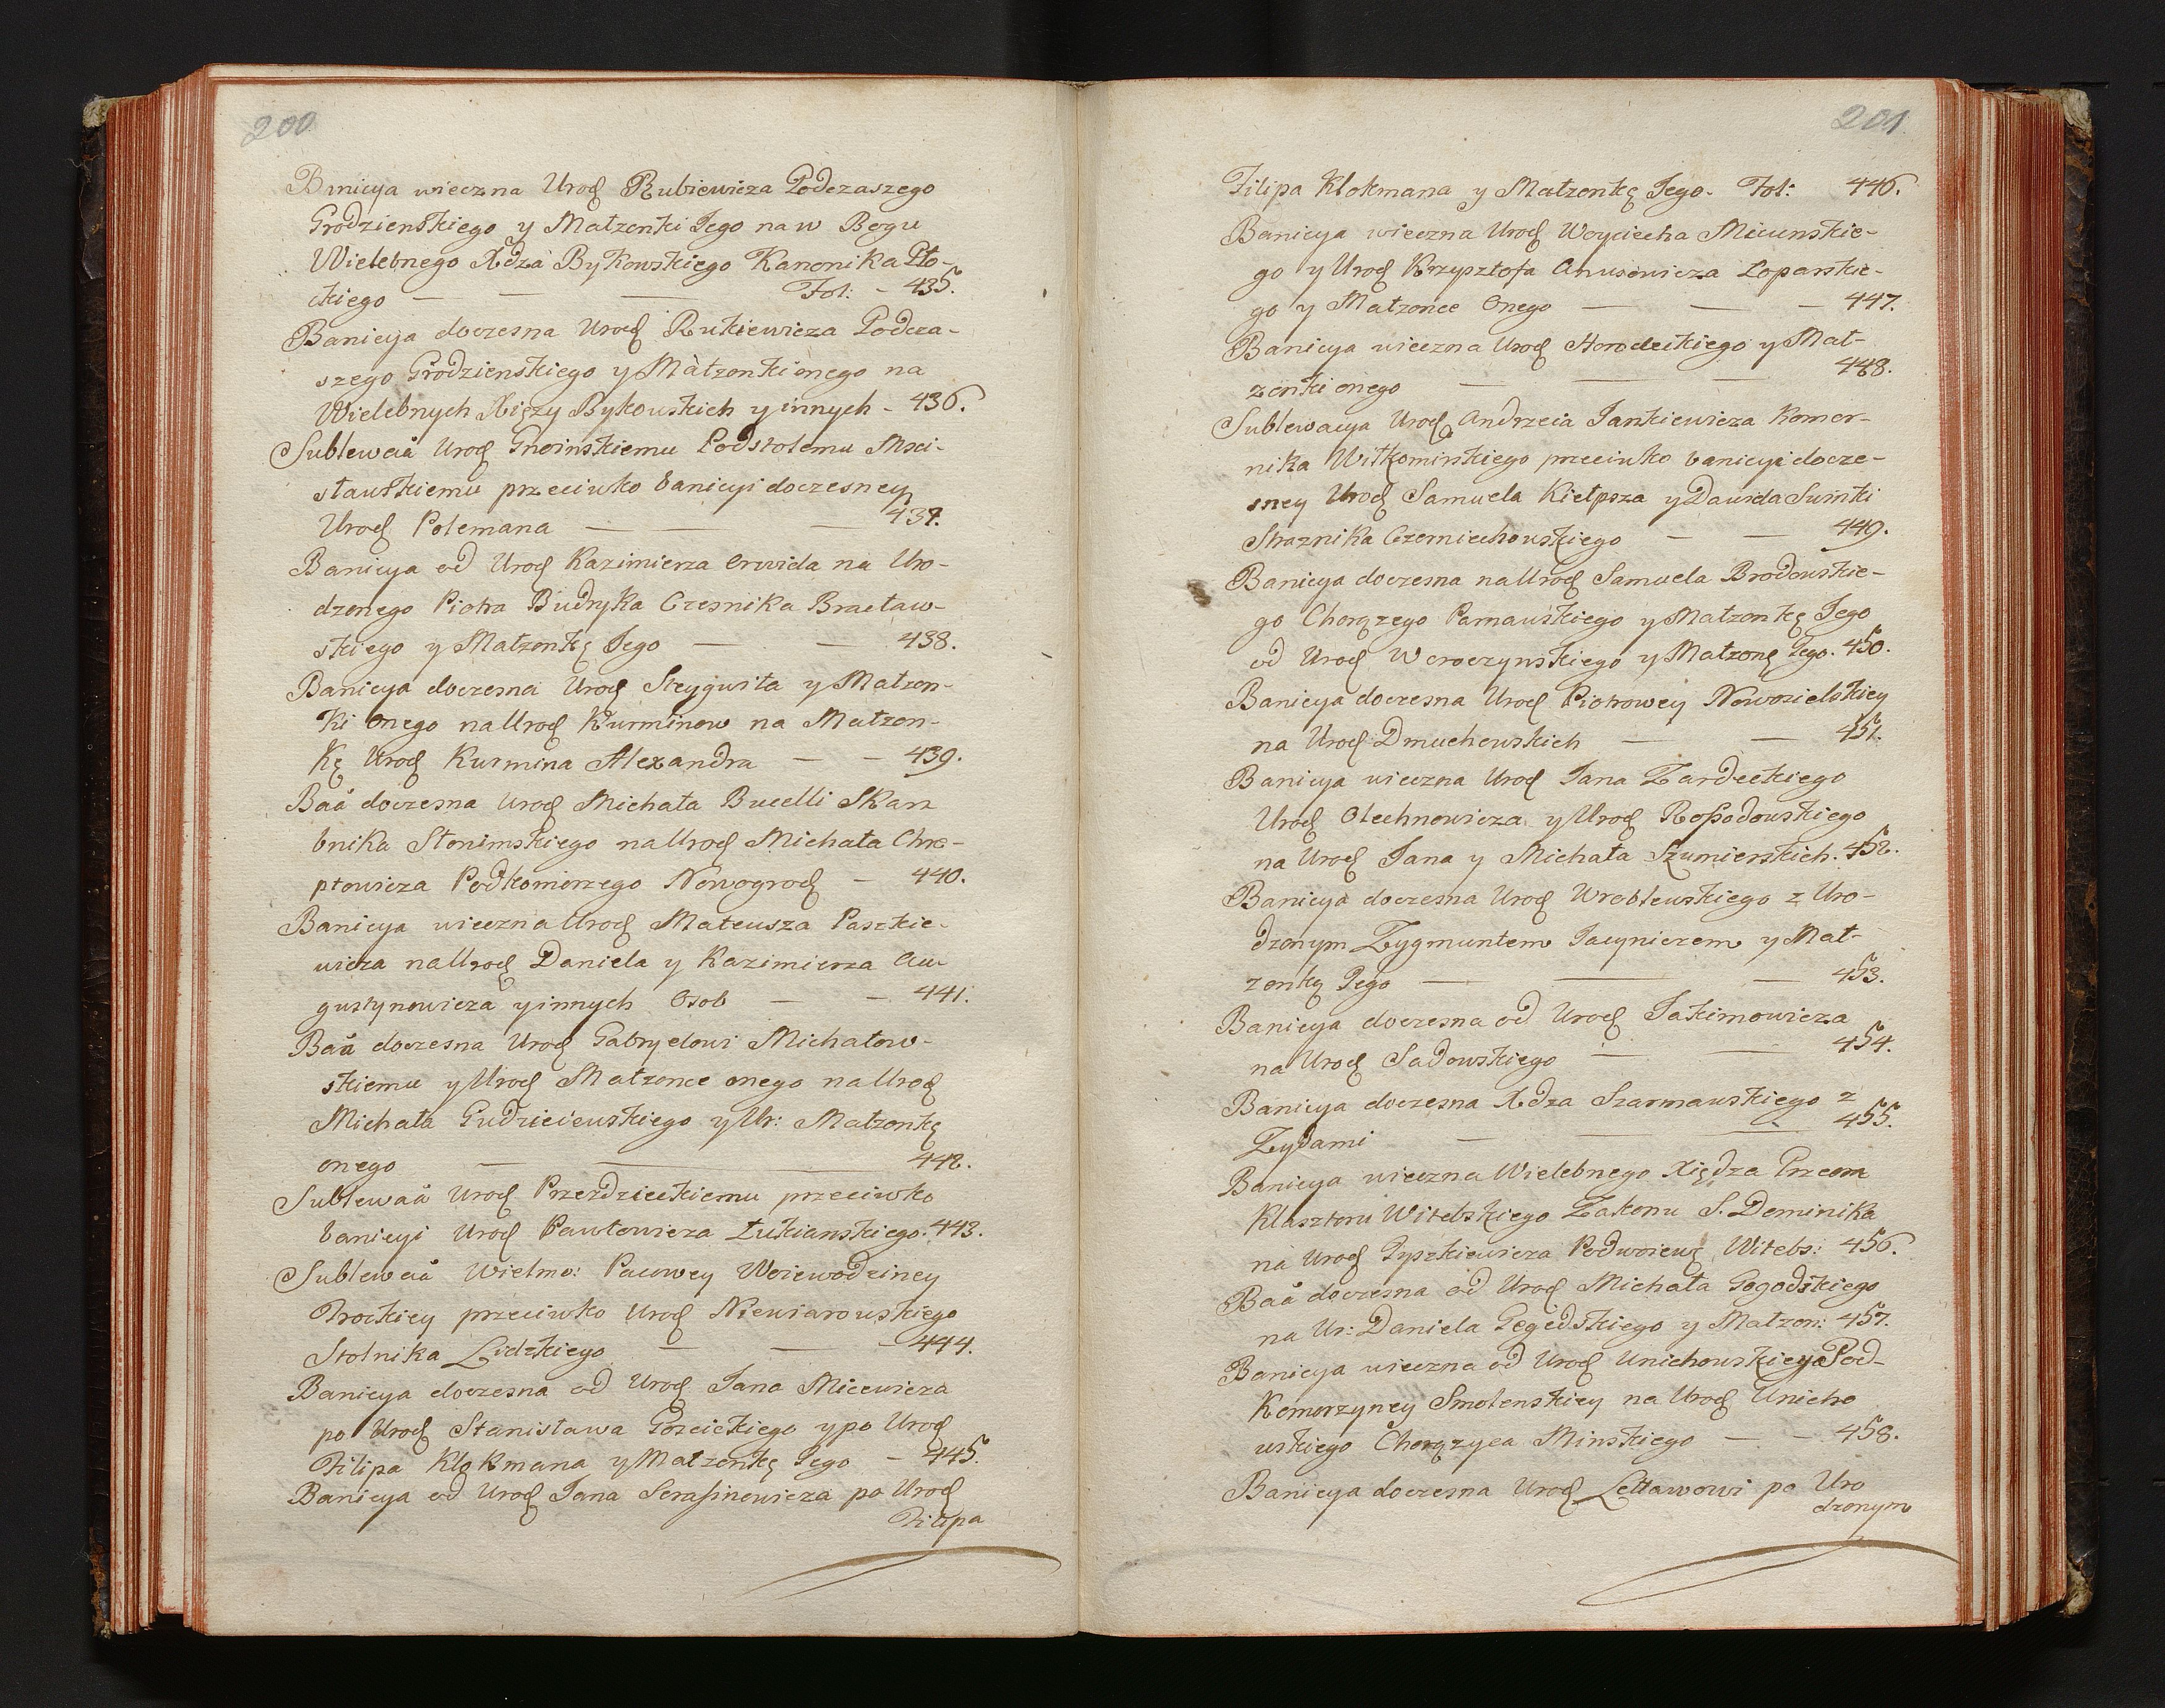 200
Banicya wieczna Urod Rubiewicza Podczaszego
Grodzienskiego y Małzonki Jego na w Bogu
Wielebnego Xdza Bykowskiego Kanonika Pło-
ckiego — — — Fol: - 435.
Banicya doczesna Urod Rukiewicza Podcza-
szego Grodzienskiego y Małzonki onego na
Wielebnych Xięzy Bykowskich y innych - 436.
Sublewcia Urod Gnoinskiemu Podstolemu Msci-
sławskiemu przeciwko banicyi doczesney
Urod Polemana — — — 437.
Banicya od Urod Kazimierza Orwida na Uro-
dzonego Piotra Budryka Czesnika Bracław-
skiego y Małzonkę Jego — — 438.
Banicya doczesna Urod Steygwiła y Małzon-
ki Onego na Urod Kurminow na Małzon-
kę Urod Kurmina Alexandra — — 439.
Baã doczesna Urod Michała Bucelli Skar
bnika Słonimskiego na Urod Michała Chre-
ptowicza Podkomorzego Nowogrod — 440.
Banicya wieczna Urod Mateusza Paszkie-
wicza na Urod Daniela y Kazimierza Au-
gustynowicza y innych Osob — — 441.
Baã doczesna Urod Gabryelowi Michałow-
skiemu y Urod Małzonce onego na Urod
Michała Gudzieiewskiego y Ur: Małzonkę
onego — — — 442.
Sublewaã Urod Przezdzieckiemu przeciwko
banicyi Urod Pawłowicza Łukianskiego. 443.
Sublewcã Wielmo: Pacowey Woiewodziney
Trockiey przeciwko Urod Niewiarowskiego
Stolnika Lidzkiego — — — 444.
Banicya doczesna od Urod Jana Micewicza
po Urod Stanisława Gozcickiego y po Urod
Filipa Klokmana y Małzonkę Jego — 445.
Banicya od Urod Jana Serafinowicza po Urod
Filipa
201
Filipa Klokmana y Małzonkę Jego. Fol: 446.
Banicya wieczna Urod Woyciecha Micunskie-
go y Urod Krzysztofa Anusewicza Loparskie-
go y Małzonce Onego — — — 447.
Banicya wieczna Urod Horodeckiego y Mał-
zonki onego — — — 448.
Sublewacya Urod Andrzeia Jankiewicza Komor-
nika Wiłkomirskiego przeciwko banicyi docze-
sney Urod Samuela Kiełpsza y Dawida Suinki
Straznika Czerniechowskiego — — 449.
Banicya doczesna na Urod Samuela Brodowskie-
go Chorązego Parnawskiego y Małzonkę Jego
od Urod Woroczynskiego y Małzonę Jego. 450.
Banicya doczesna Urod Piotrowey Nowosielskiey
na Urod Dmuchowskich — — 451.
Banicya wieczna Urod Jana Zardeckiego
Urod Olechnowicza y Urod Roßodowskiego
na Urod Jana y Michała Szumierskich. 452.
Banicya doczesna Urod Wroblewskiego z Uro-
dzonym Zygmuntem Jacynicrem y Mał-
zonkę Jego — — — 453.
Banicya doczesna od Urod Jakimowicza
na Urod Sadowskiego — — 454.
Banicya doczesna Xdza Szarmawskiego z
Zydami — — — 455.
Banicya wieczna Wielebnego Xiędza Przeora
Klasztoru Witebskiego Zakonu S. Dominika
na Urod Pyszkiewicza Podwoiewę Witebs: 456.
Baã doczesna od Urod Michała Gogodskiego
na Ur: Daniela Gegedskiego y Małzon: 457.
Banicya wieczna od Urod Unichowskieya Pod-
Komorzyney Smolenskiey na Urod Unicho
wskiego Chorązyca Minskiego — - 458.
Banicya doczesna Urod Lettawowi po Uro
dzonym